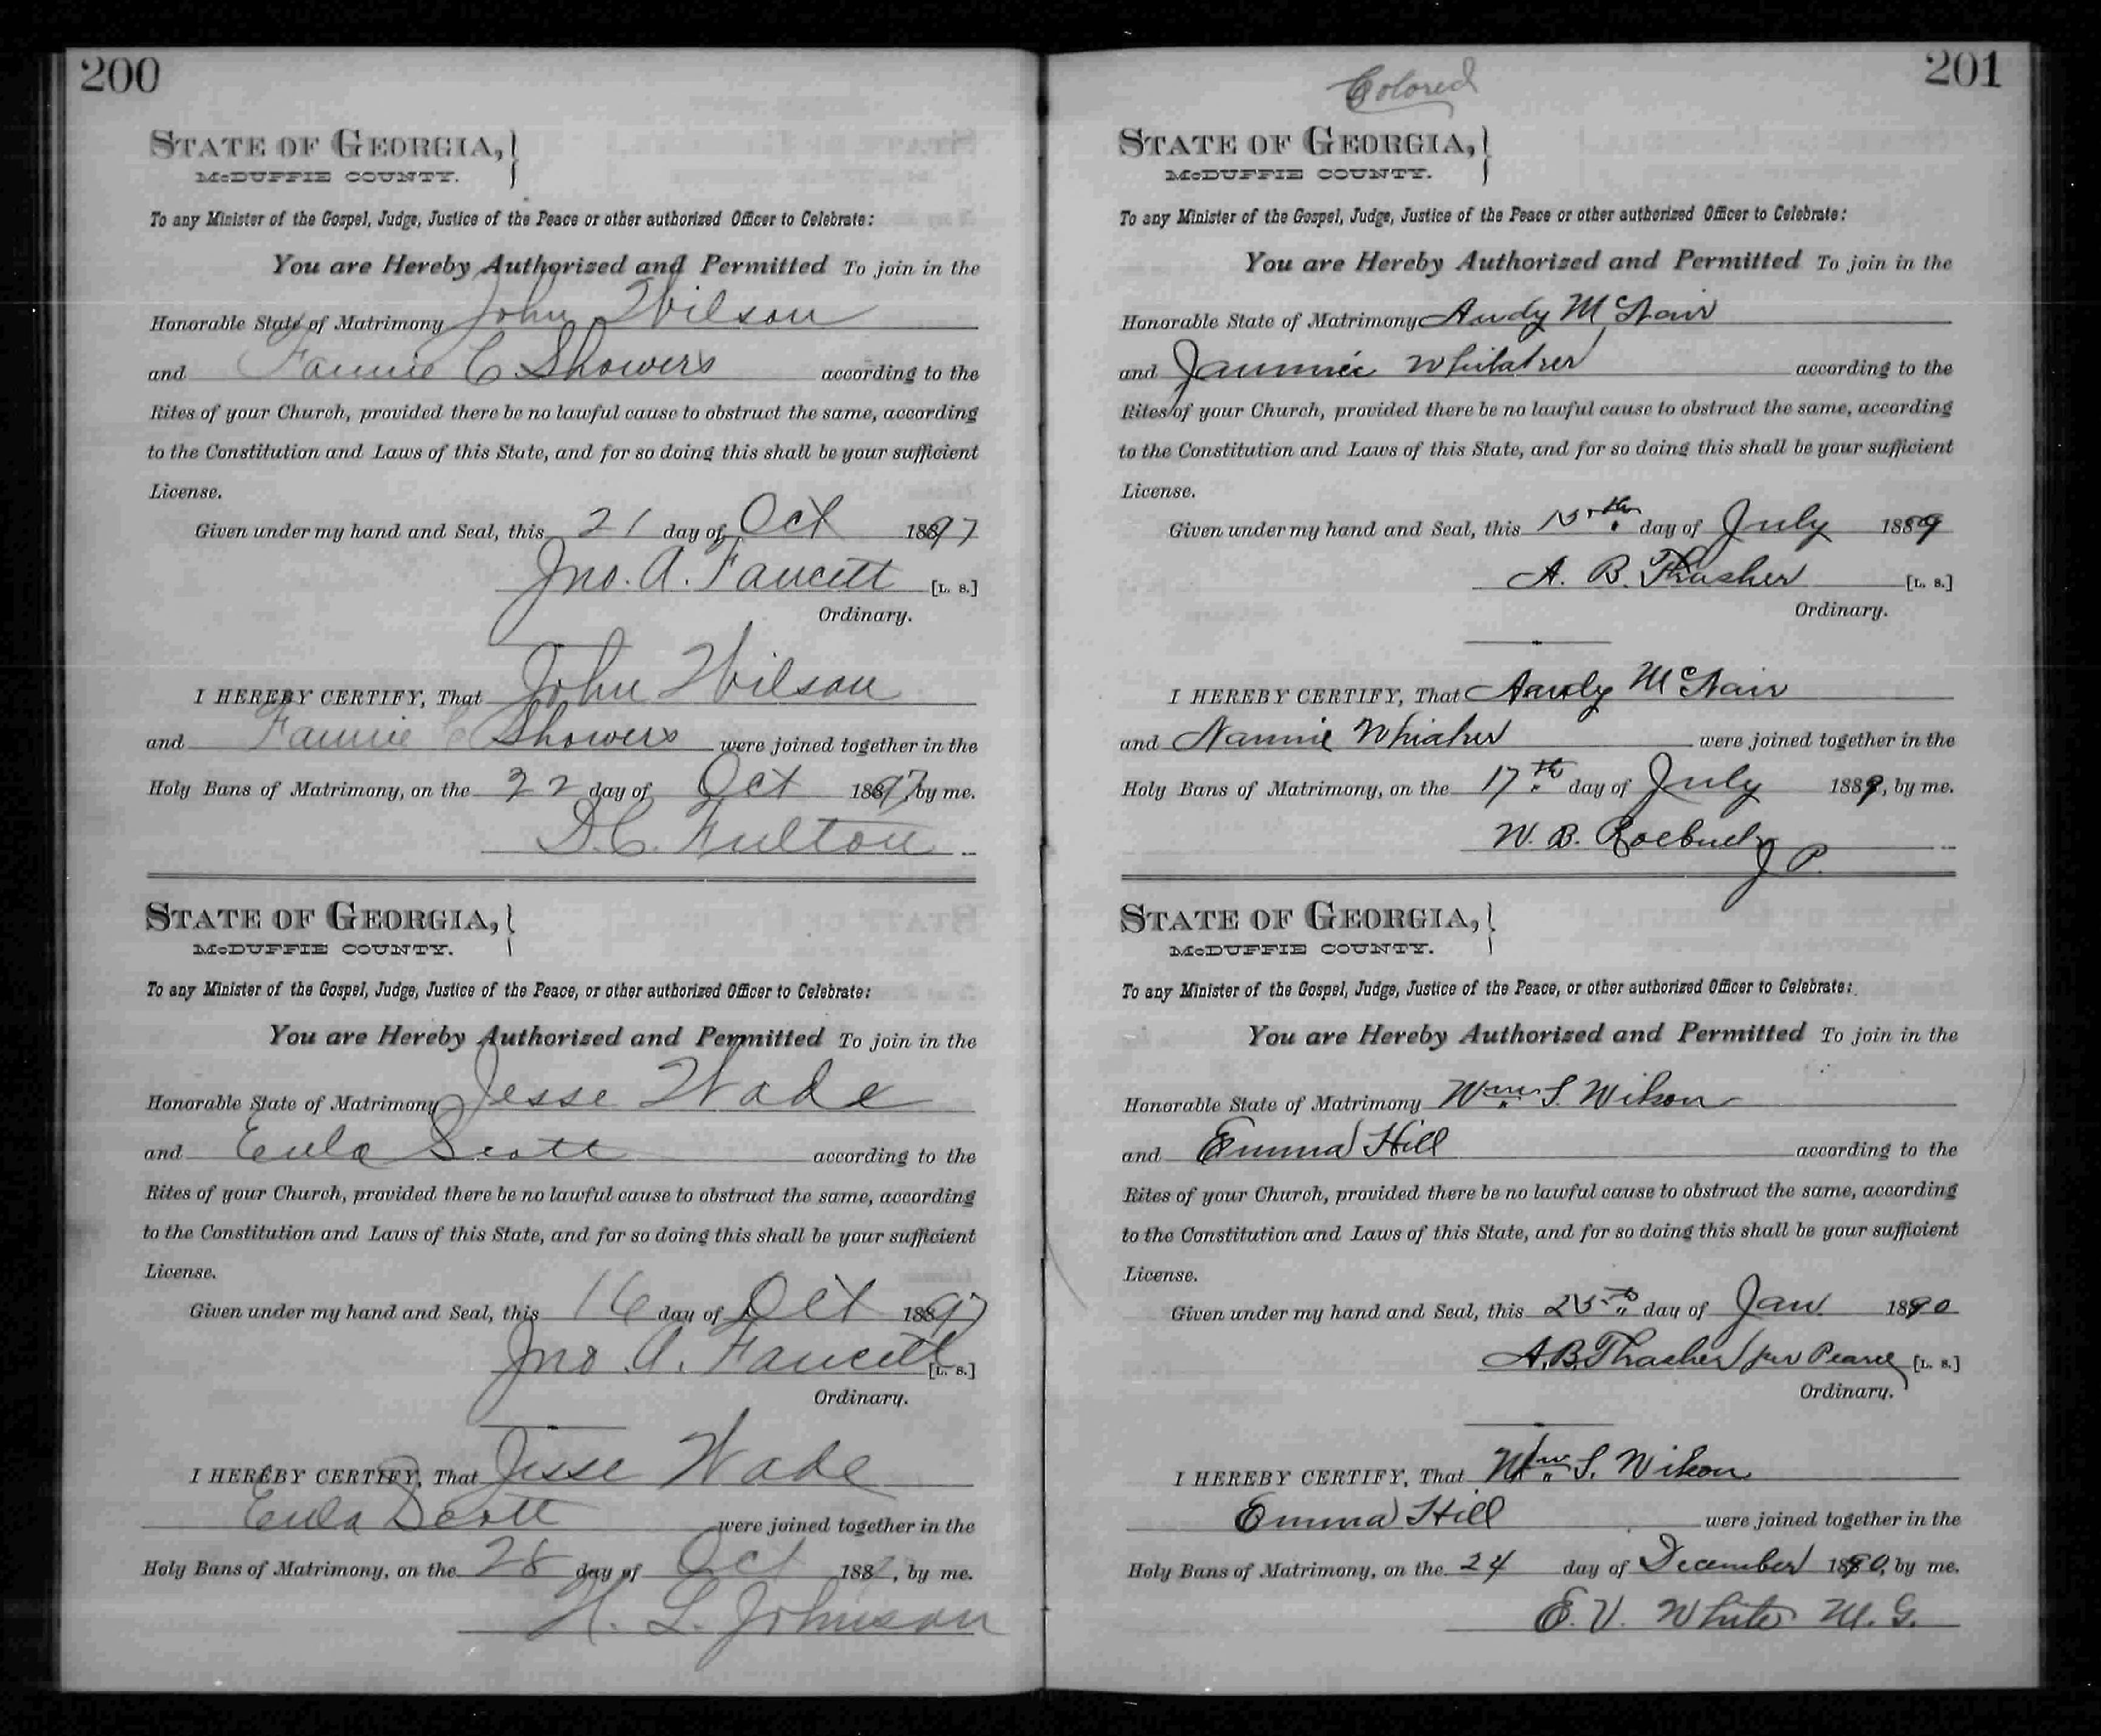 200
STATE OF GEORGIA,
McDUFFIE COUNTY.
To any Minister of the Gospel, Judge, Justice of the Peace or other authorized Officer to Celebrate:
You are Hereby Authorized and Permitted To join in the
Honorable State of Matrimony John Wilson
and Fannie C. Showers according to the
Rites of your Church, provided there be no lawful cause to obstruct the same, according
to the Constitution and Laws of this State, and for so doing this shall be your sufficient
License.
Given under my hand and Seal, this 21 day of Oct 1897
Jno. A. Faucett [L. S.]
Ordinary.
I HEREBY CERTIFY, That John Wilson
and Fannie C Showers were joined together in the
Holy Bans of Matrimony, on the 22 day of Oct 1897, by me.
D.C. Fulton
STATE OF GEORGIA,
McDUFFIE COUNTY.
To any Minister of the Gospel, Judge, Justice of the Peace, or other authorized Officer to Celebrate:
You are Hereby Authorized and Permitted To join in the
Honorable State of Matrimony Jesse Wade
and Eula Scott according to the
Rites of your Church, provided there be no lawful cause to obstruct the same, according
to the Constitution and Laws of this State, and for so doing this shall be your sufficient
License.
Given under my hand and Seal, this 16 day of Oct 1897
Jno A. Faucett [L. S.]
Ordinary.
I HEREBY CERTIFY, That Jesse Wade
Eula Scott were joined together in the
Holy Bans of Matrimony, on the 28 day of Oct 188, by me.
H. L. Johnson
201
Colored
STATE OF GEORGIA,
McDUFFIE COUNTY.
To any Minister of the Gospel, Judge, Justice of the Peace or other authorized Officer to Celebrate:
You are Hereby Authorized and Permitted To join in the
Honorable State of Matrimony Andy McNair
and Jannnie Whitaker according to the
Rites of your Church, provided there be no lawful cause to obstruct the same, according
to the Constitution and Laws of this State, and for so doing this shall be your sufficient
License.
Given under my hand and Seal, this 15th day of July 1889
A. B. Thrasher [L. S.]
Ordinary.
I HEREBY CERTIFY, That Andy McNair
and Nannie Whiaker were joined together in the
Holy Bans of Matrimony, on the 17th day of July 1889, by me.
W. B. Roebuck J P.
STATE OF GEORGIA,
McDUFFIE COUNTY.
To any Minister of the Gospel, Judge, Justice of the Peace, or other authorized Officer to Celebrate:
You are Hereby Authorized and Permitted To join in the
Honorable State of Matrimony Wm S. Wilson
and Emma Hill according to the
Rites of your Church, provided there be no lawful cause to obstruct the same, according
to the Constitution and Laws of this State, and for so doing this shall be your sufficient
License.
Given under my hand and Seal, this 25th day of Jan. 1890
A.B. Thrasher per Pearce [L. S.]
Ordinary.
I HEREBY CERTIFY, That Wm S. Wilson
Emma Hill were joined together in the
Holy Bans of Matrimony, on the 24 day of December 1890, by me.
E. V. White M. G.